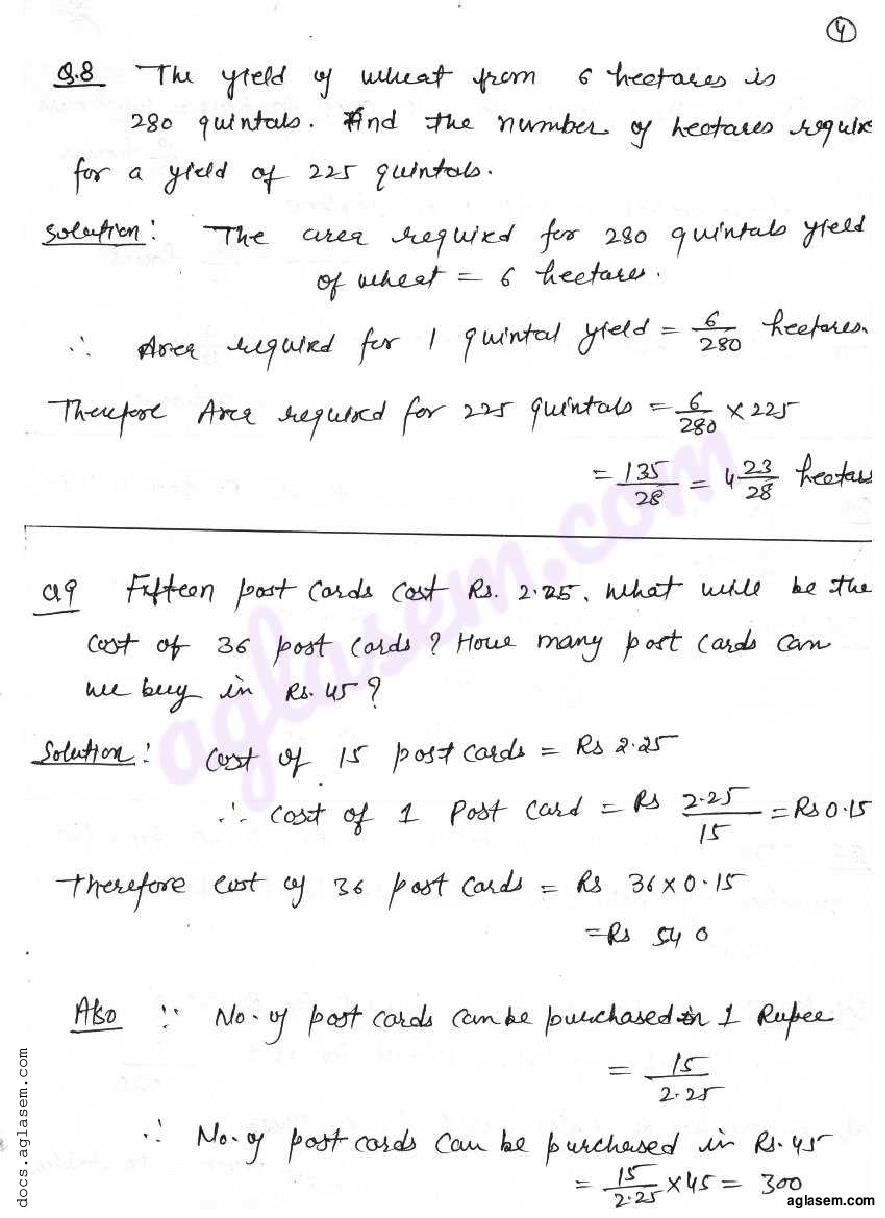 4
Q.8 The yield of wheat from 6 hectares is
280 quintals. Find the number of hectares require
for a yield of 225 quintals.
Solution: The area required for 280 quintals yield
of wheat = 6 hectares.
∴ Area required for 1 quintal yield = 6/280 hectares.
Therefore Area required for 225 quintals = 6/280 × 225
= 135/28 = 4 23/28 hectars
Q9 Fifteen post cards cost Rs. 2.25. What will be the
cost of 36 post cards? How many post cards can
we buy in Rs. 45?
Solution: Cost of 15 post cards = Rs 2.25
∴ cost of 1 Post Card = Rs 2.25/15 = Rs 0.15
Therefore cost of 36 post cards = Rs 36×0.15
= Rs 540
Also ∵ No. of post cards can be purchased in 1 Rupee
= 15/2.25
∴ No. of post cards can be purchased in Rs. 45
= 15/2.25 × 45 = 300
aglasem.com
docs.aglasem.com
aglasem.com